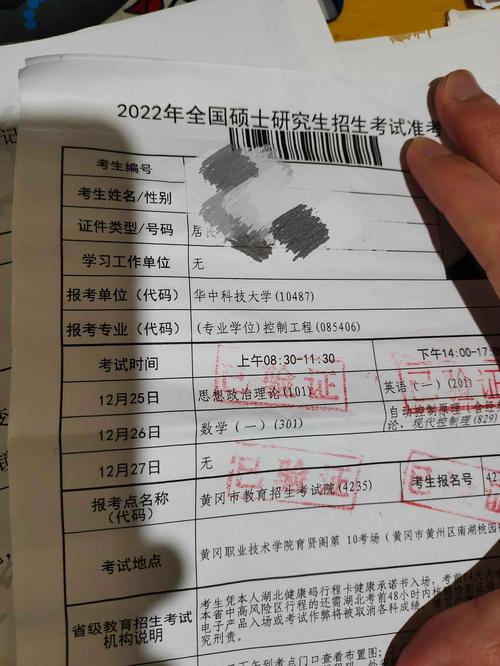 2022年全国硕士研究生招生考试准考
考生编号
考生姓名/性别
证件类型/号码 居民
学习工作单位 无
报考单位（代码） 华中科技大学(10487)
报考专业（代码） (专业学位)控制工程(085406)
考试时间 上午08:30-11:30 下午14:00-17
12月25日 思想政治理论(101) 英语（一）(201)
12月26日 数学（一）(301) 自动控制原理
论、现代控制理(829)
12月27日 无
已验证
已验证
已验证
已
报考点名称（代码） 黄冈市教育招生考试院(4235) 考生报名号 42
考试地点 黄冈职业技术学院育贤阁第 10考场（黄冈市黄州区南湖桃园
省级教育招生考试机构说明
考生凭本人湖北健康码行程卡健康承诺书入场，考前14天内
本省中高风险区行程的还需湖北考前48小时内核
电子产品入场或考试作弊将被取消各科成绩，
究刑责。
下午到考点门口查看布置图；